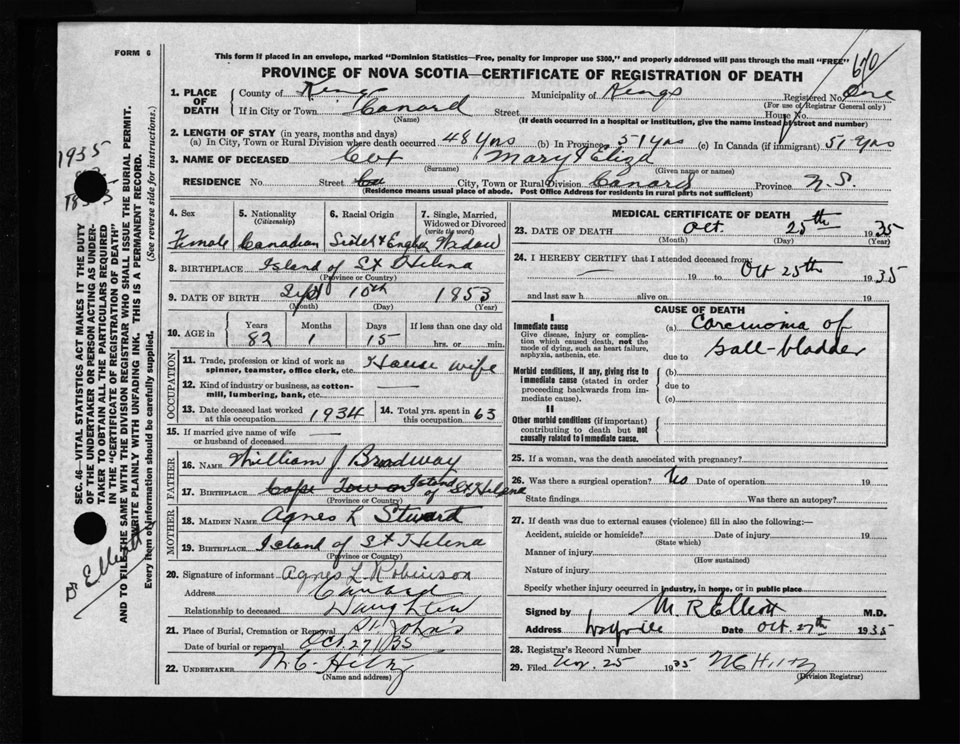 FORM 6
This form if placed in an envelope, marked "Dominion Statistics—Free, penalty for improper use $300," and properly addressed will pass through the mail "FREE"
PROVINCE OF NOVA SCOTIA—CERTIFICATE OF REGISTRATION OF DEATH
1. PLACE OF DEATH
County of Kings Municipality of Kings Registered No. One
(For use of Registrar General only)
If in City or Town Canard Street House No.
(Name) (If death occurred in a hospital or institution, give the name instead of street and number)
2. LENGTH OF STAY (in years, months and days)
(a) In City, Town or Rural Division where death occurred 48 Yrs (b) In Province 51 Yrs (c) In Canada (if immigrant) 51 Yrs
3. NAME OF DECEASED Cox Mary Eliza
(Surname) (Given name or names)
RESIDENCE No. Street City, Town or Rural Division Canard Province N.S.
(Residence means usual place of abode. Post Office Address for residents in rural parts not sufficient)
4. Sex Female
5. Nationality (Citizenship) Canadian
6. Racial Origin
7. Single, Married, Widowed or Divorced (write the word) Widow
8. BIRTHPLACE Island of St Helena
(Province or Country)
9. DATE OF BIRTH Sept 10th 1853
(Month) (Day) (Year)
10. AGE in Years 82 Months 1 Days 15 If less than one day old hrs. or min.
OCCUPATION
11. Trade, profession or kind of work as spinner, teamster, office clerk, etc. House wife
12. Kind of industry or business, as cotton-mill, lumbering, bank, etc. —
13. Date deceased last worked at this occupation 1934
14. Total yrs. spent in this occupation 63
15. If married give name of wife or husband of deceased —
FATHER
16. NAME William J Broadway
17. BIRTHPLACE Cape Town Island of St Helena
(Province or Country)
MOTHER
18. MAIDEN NAME Agnes L Stewart
19. BIRTHPLACE Island of St Helena
(Province or Country)
20. Signature of informant Agnes L. Robinson
Address Canard
Relationship to deceased Daughter
21. Place of Burial, Cremation or Removal St. John's
Date of burial or removal Oct. 27/35
22. UNDERTAKER N. E. Hiltz
(Name and address)
MEDICAL CERTIFICATE OF DEATH
23. DATE OF DEATH Oct. 25th 1935
(Month) (Day) (Year)
24. I HEREBY CERTIFY that I attended deceased from:
— 19 to Oct 25th 1935
and last saw h alive on 19
CAUSE OF DEATH
I
Immediate cause
Give disease, injury or complication which caused death, not the mode of dying, such as heart failure, asphyxia, asthenia, etc.
(a) Carcinoma of
due to Gall-bladder
Morbid conditions, if any, giving rise to immediate cause (stated in order proceeding backwards from immediate cause).
(b)
due to
(c)
II
Other morbid conditions (if important) contributing to death but not causally related to immediate cause.
25. If a woman, was the death associated with pregnancy?
26. Was there a surgical operation? No Date of operation 19
State findings Was there an autopsy?
27. If death was due to external causes (violence) fill in also the following:—
Accident, suicide or homicide? Date of injury 19
(State which)
Manner of injury
(How sustained)
Nature of injury
Specify whether injury occurred in industry, in home, or in public place
Signed by M R Elliott M.D.
Address Wolfville Date Oct. 27th 1935
28. Registrar's Record Number
29. Filed Nov. 25 1935 N E Hiltz
(Division Registrar)
SEC. 46—VITAL STATISTICS ACT MAKES IT THE DUTY
OF THE UNDERTAKER OR PERSON ACTING AS UNDER-
TAKER TO OBTAIN ALL THE PARTICULARS REQUIRED
IN THE "CERTIFICATE OF REGISTRATION OF DEATH"
AND TO FILE THE SAME WITH THE DIVISION REGISTRAR WHO SHALL ISSUE THE BURIAL PERMIT.
WRITE PLAINLY WITH UNFADING INK. THIS IS A PERMANENT RECORD.
Every item of information should be carefully supplied. (See reverse side for instructions.)
1935
Dr Elliott